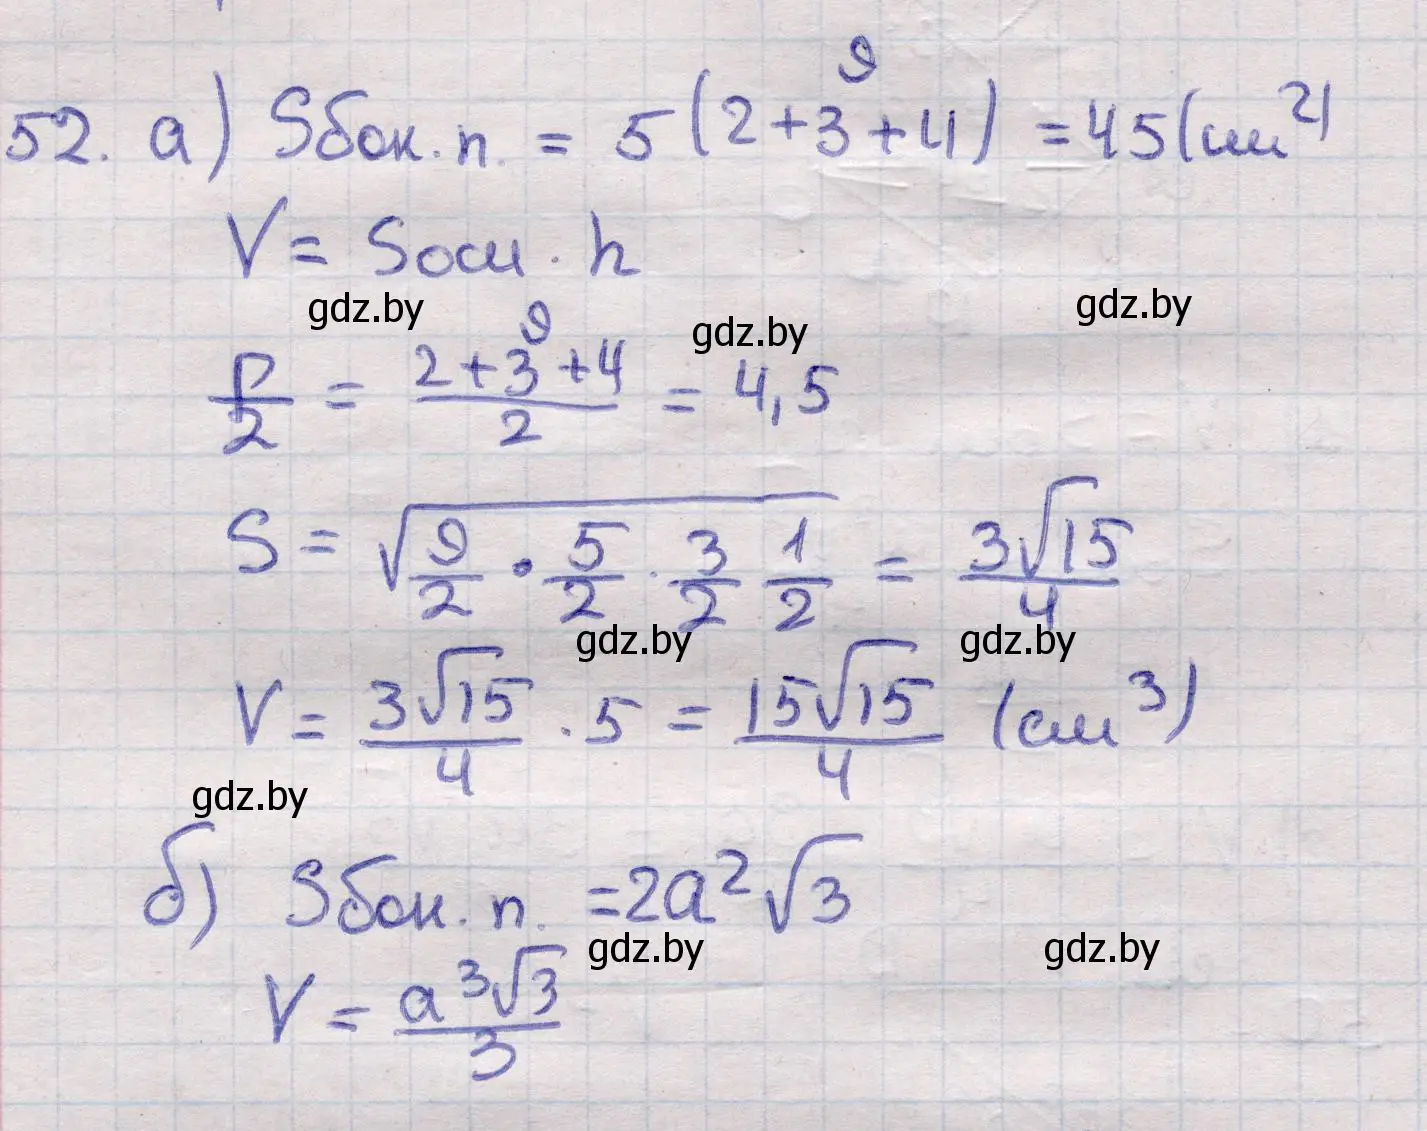 52. а) Sбок.п. = 5(2+3+4) = 45(см²)
9
V = Sосн · h
gdz.by gdz.by gdz.by
9
P/2 = (2+3+4)/2 = 4,5
S = √(9/2 · 5/2 · 3/2 1/2) = 3√15/4
gdz.by gdz.by
V = 3√15/4 · 5 = 15√15/4 (см³)
gdz.by
б) Sбок.п. = 2a²√3
gdz.by gdz.by
V = a³√3/3